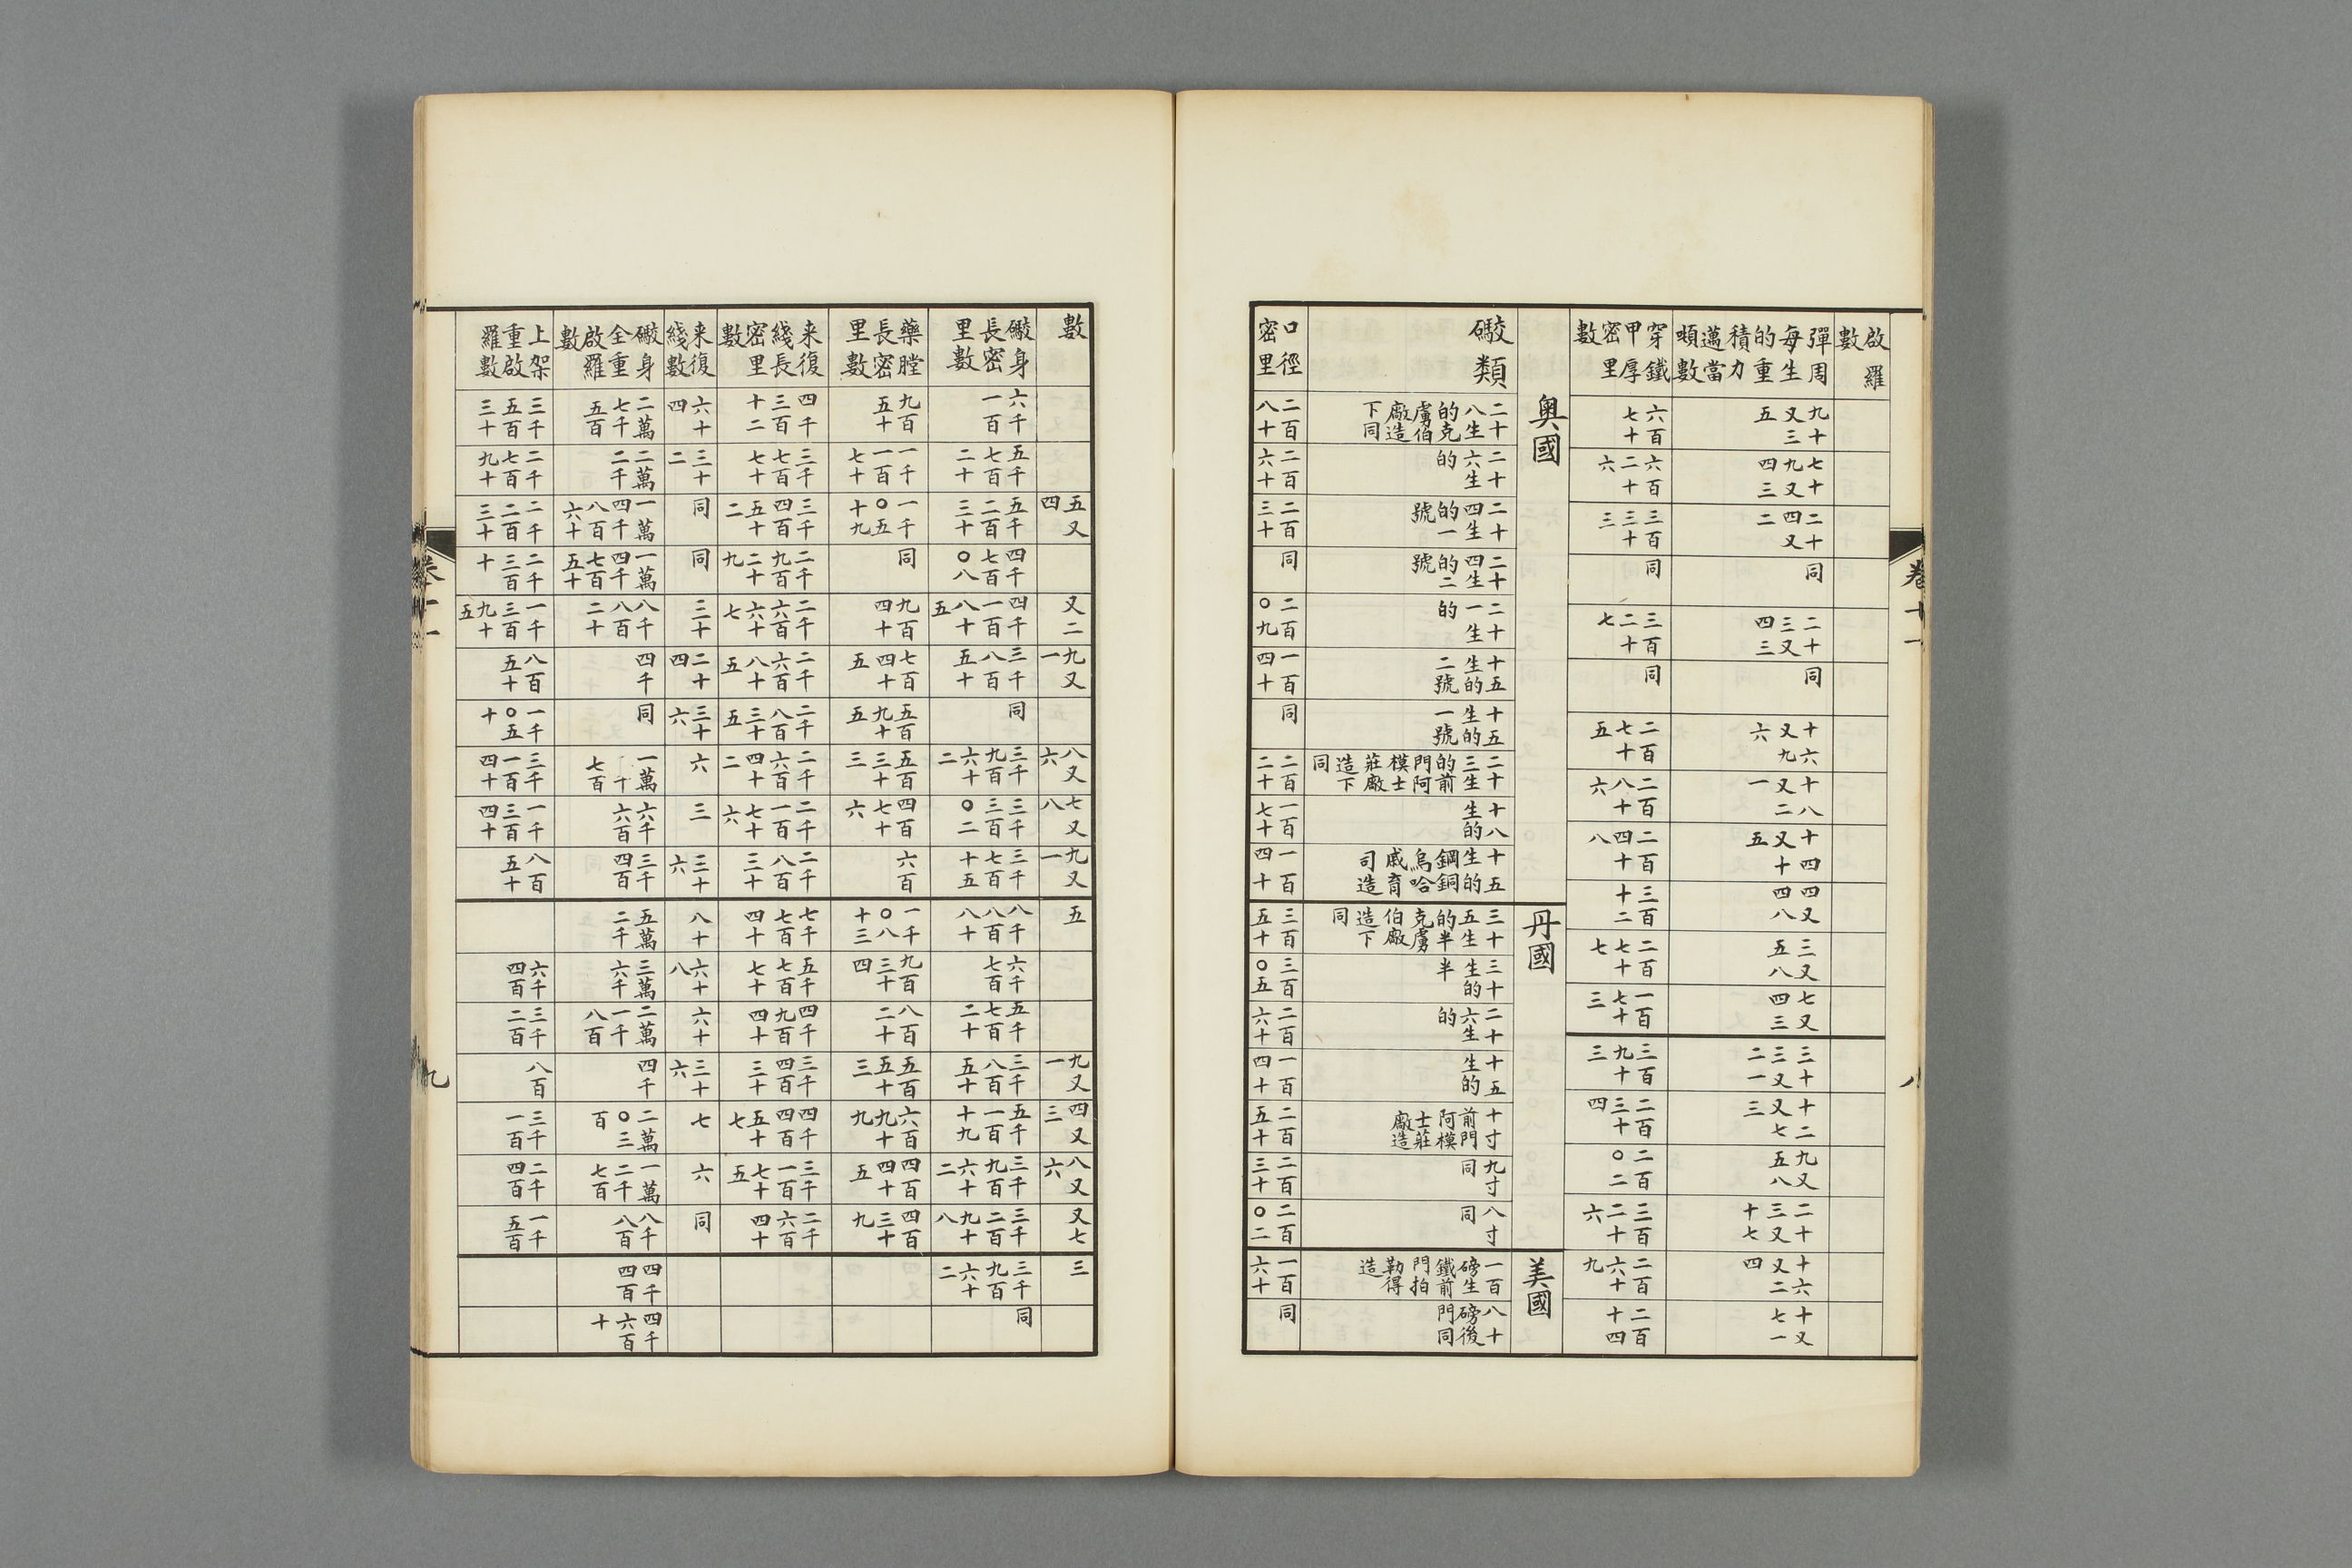 卷十一
八
啟羅
數
彈周每生的重積力邁當
噸數
九十又三五
七十九又四三
二十四又二
同
二十三又四三
同
十六又九六
十八又二一
十四又十五
四又四八
三又五八
七又四三
三十三又二一
十二又七三
九又五八
二十三又十七
十六又二四
十又七一
穿鐵甲厚密里
數
六百七十
六百二十六
三百三十三
同
三百二十七
同
二百七十五
二百八十六
二百四十八
三百十二
二百七十七
一百七十三
三百九十三
二百三十四
二百〇二
三百二十六
二百六十九
二百十四
奧國
丹國
美國
礮類
二十八生的克虜伯廠造下同
二十六生的
二十四生的一號
二十四生的二號
二十一生的
十五生的二號
十五生的一號
二十三生的前門阿模士莊廠造下同
十八生的
十五生的鋼銅烏哈戚育司造
三十五生的半克虜伯廠造下同
三十生的半
二十六生的
十五生的
十寸前門阿模士莊廠造
九寸同
八寸同
一百磅生鐵前門拍勒得造
八十磅後門同
口徑密里
二百八十
二百六十
二百三十
同
二百〇九
一百四十
同
二百二十
一百七十
一百四十
三百五十
三百〇五
二百六十
一百四十
二百五十
二百三十
二百〇二
一百六十
同
數
五又四
又二
九又一
八又六
七又八
九又一
五
九又一
四又三
八又六
又七
三
礮身長密里數
六千一百
五千七百二十
五千二百三十
四千七百〇八
四千一百八十五
三千八百五十
同
三千九百六十二
三千三百〇二
三千七百十五
八千八百八十
六千七百
五千七百二十
三千八百五十
五千一百十九
三千九百六十二
三千二百九十八
三千九百六十二
同
藥膛長密里數
九百五十
一千一百七十
一千〇五十九
同
九百四十
七百四十五
五百九十五
五百三十三
四百七十六
六百
一千〇八十三
九百三十四
八百二十
五百五十三
六百九十九
四百四十五
四百三十九
来復綫長密里數
四千三百十二
三千七百七十
三千四百五十二
二千九百二十九
二千六百六十七
二千六百八十五
二千八百三十五
二千六百四十二
二千一百七十六
二千八百三十
七千七百四十
五千七百七十
四千九百四十
三千四百三十
四千四百五十七
三千一百七十五
二千六百四十
来復綫數
六十四
三十二
同
同
三十
二十四
三十六
六
三
三十六
八十
六十八
六十
三十六
七
六
同
礮身全重啟羅數
二萬七千五百
二萬二千
一萬四千八百六十
一萬四千七百五十
八千八百二十
四千
同
一萬 千七百
六千六百
三千四百
五萬二千
三萬六千
二萬一千八百
四千
二萬〇三百
一萬二千七百
八千八百
四千四百
四千六百十
上架重啟羅數
三千五百三十
二千七百九十
二千二百三十
二千三百十
一千三百九十五
八百五十
一千〇五十
三千一百四十
一千三百四十
八百五十
六千四百
三千二百
八百
三千一百
二千四百
一千五百
卷十一
九